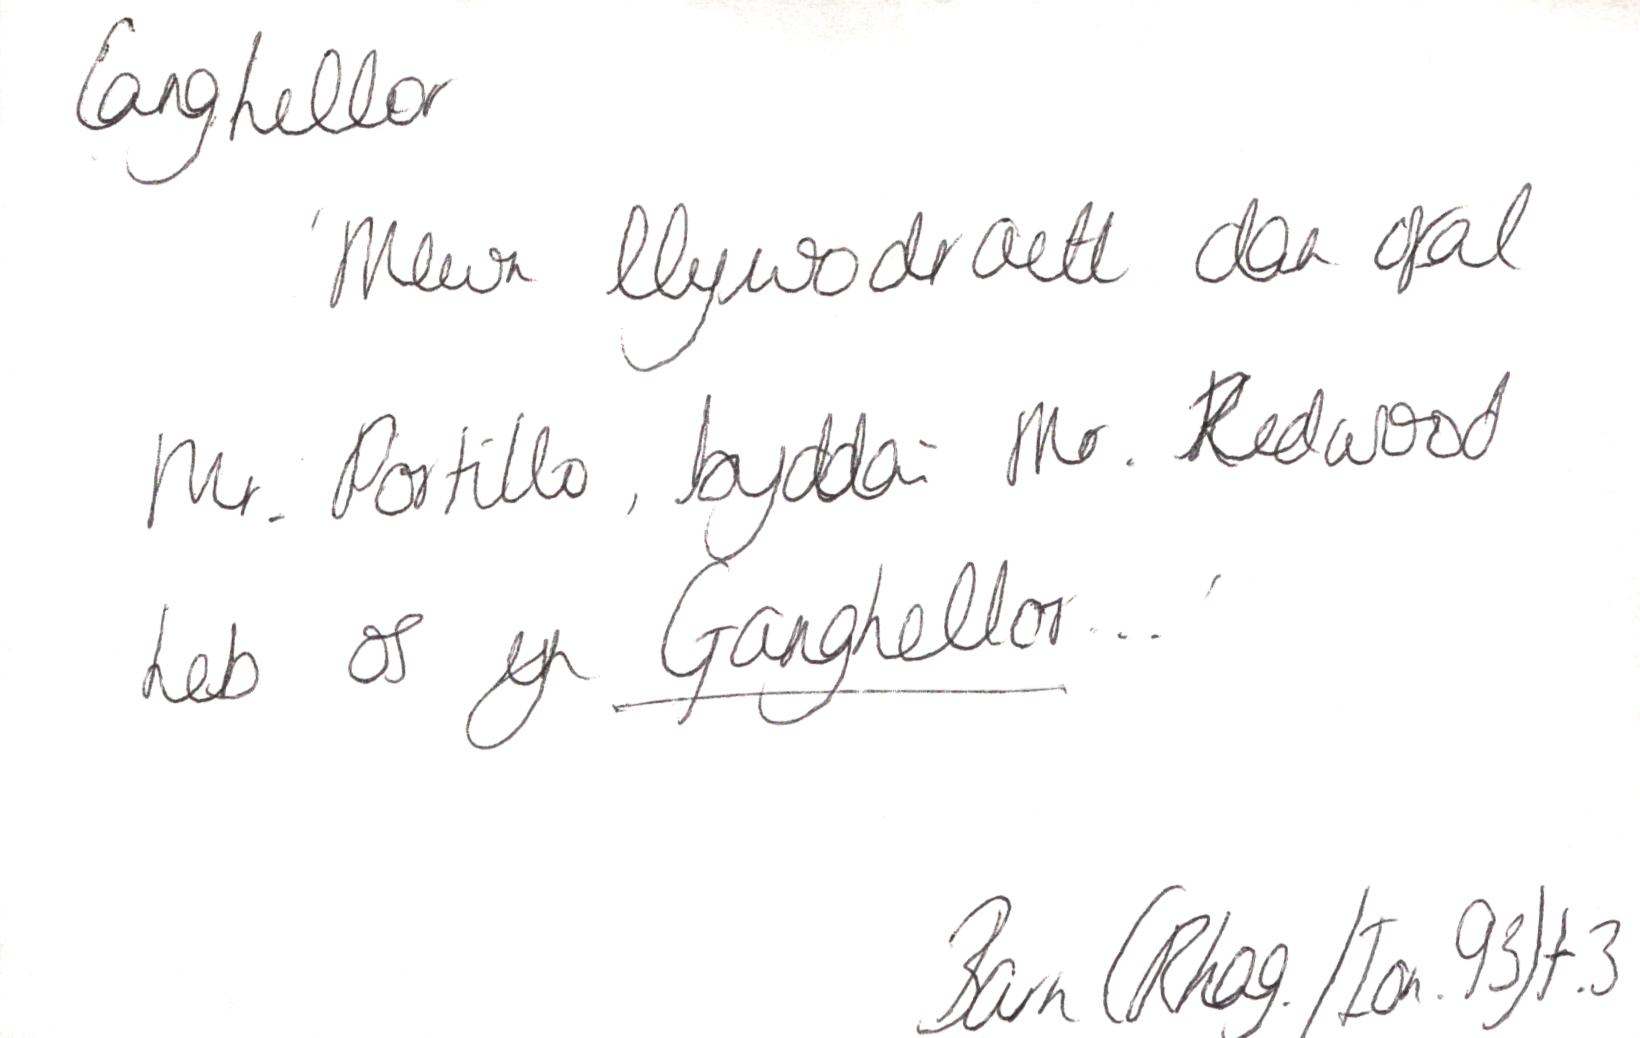 Canghellor
'Mewn llywodraeth dan ofal
Mr. Portillo, byddai Mr. Redwood
heb os yn Ganghellor...'
Barn (Rhag./Ion. 93) t.3